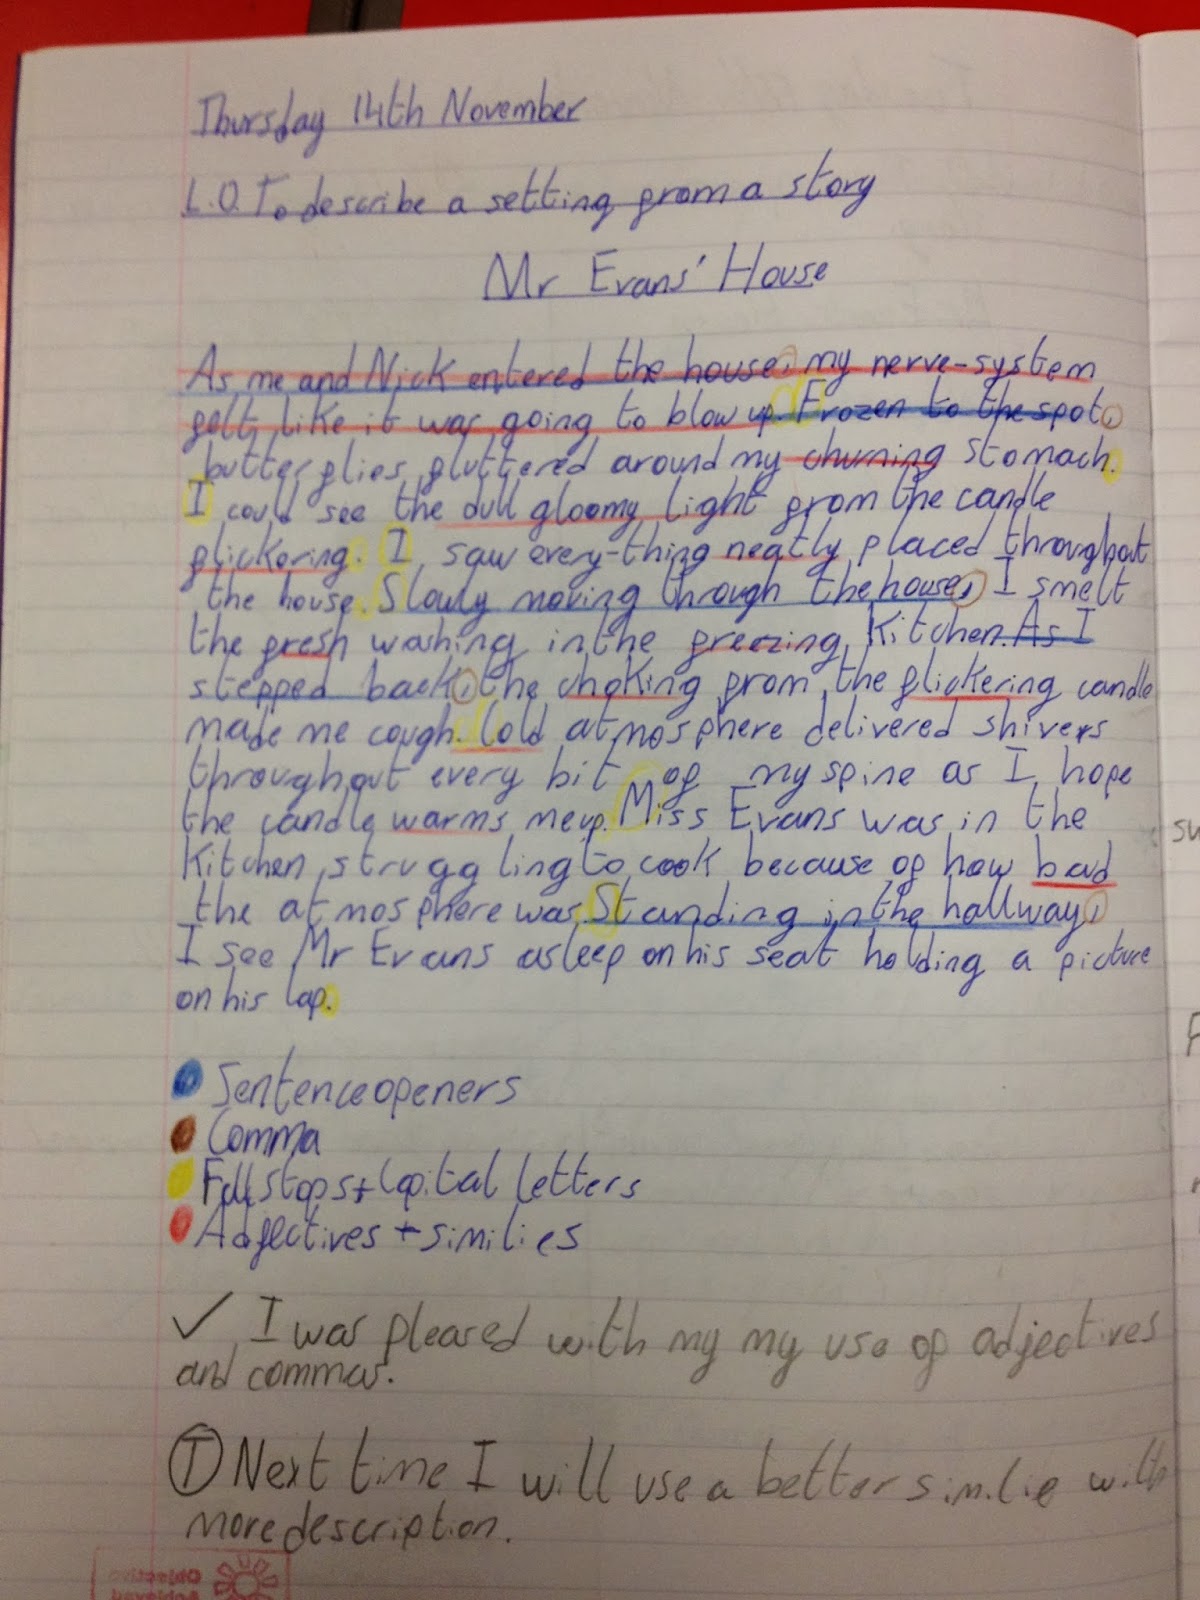 Thursday 14th November
L.O. To describe a setting from a story
Mr Evans' House
As me and Nick entered the house, my nerve-system
felt like it was going to blow up. Frozen to the spot,
butterflies fluttered around my churning stomach.
I could see the dull gloomy light from the candle
flickering. I saw every-thing neatly placed throughout
the house. Slowly moving through the house, I smelt
the fresh washing in the freezing kitchen. As I
stepped back, the choking from the flickering candle
made me cough. Cold atmosphere delivered shivers
throughout every bit of my spine as I hope
the candle warms me up. Miss Evans was in the
Kitchen struggling to cook because of how bad
the atmosphere was. Standing in the hallway,
I see Mr Evans asleep on his seat holding a picture
on his lap.
Sentence openers
Comma
Full stops + Capital letters
Adjectives + similies
✓ I was pleased with my my use of adjectives
and commas.
T Next time I will use a better similie with
more description.
Objective
Achieved